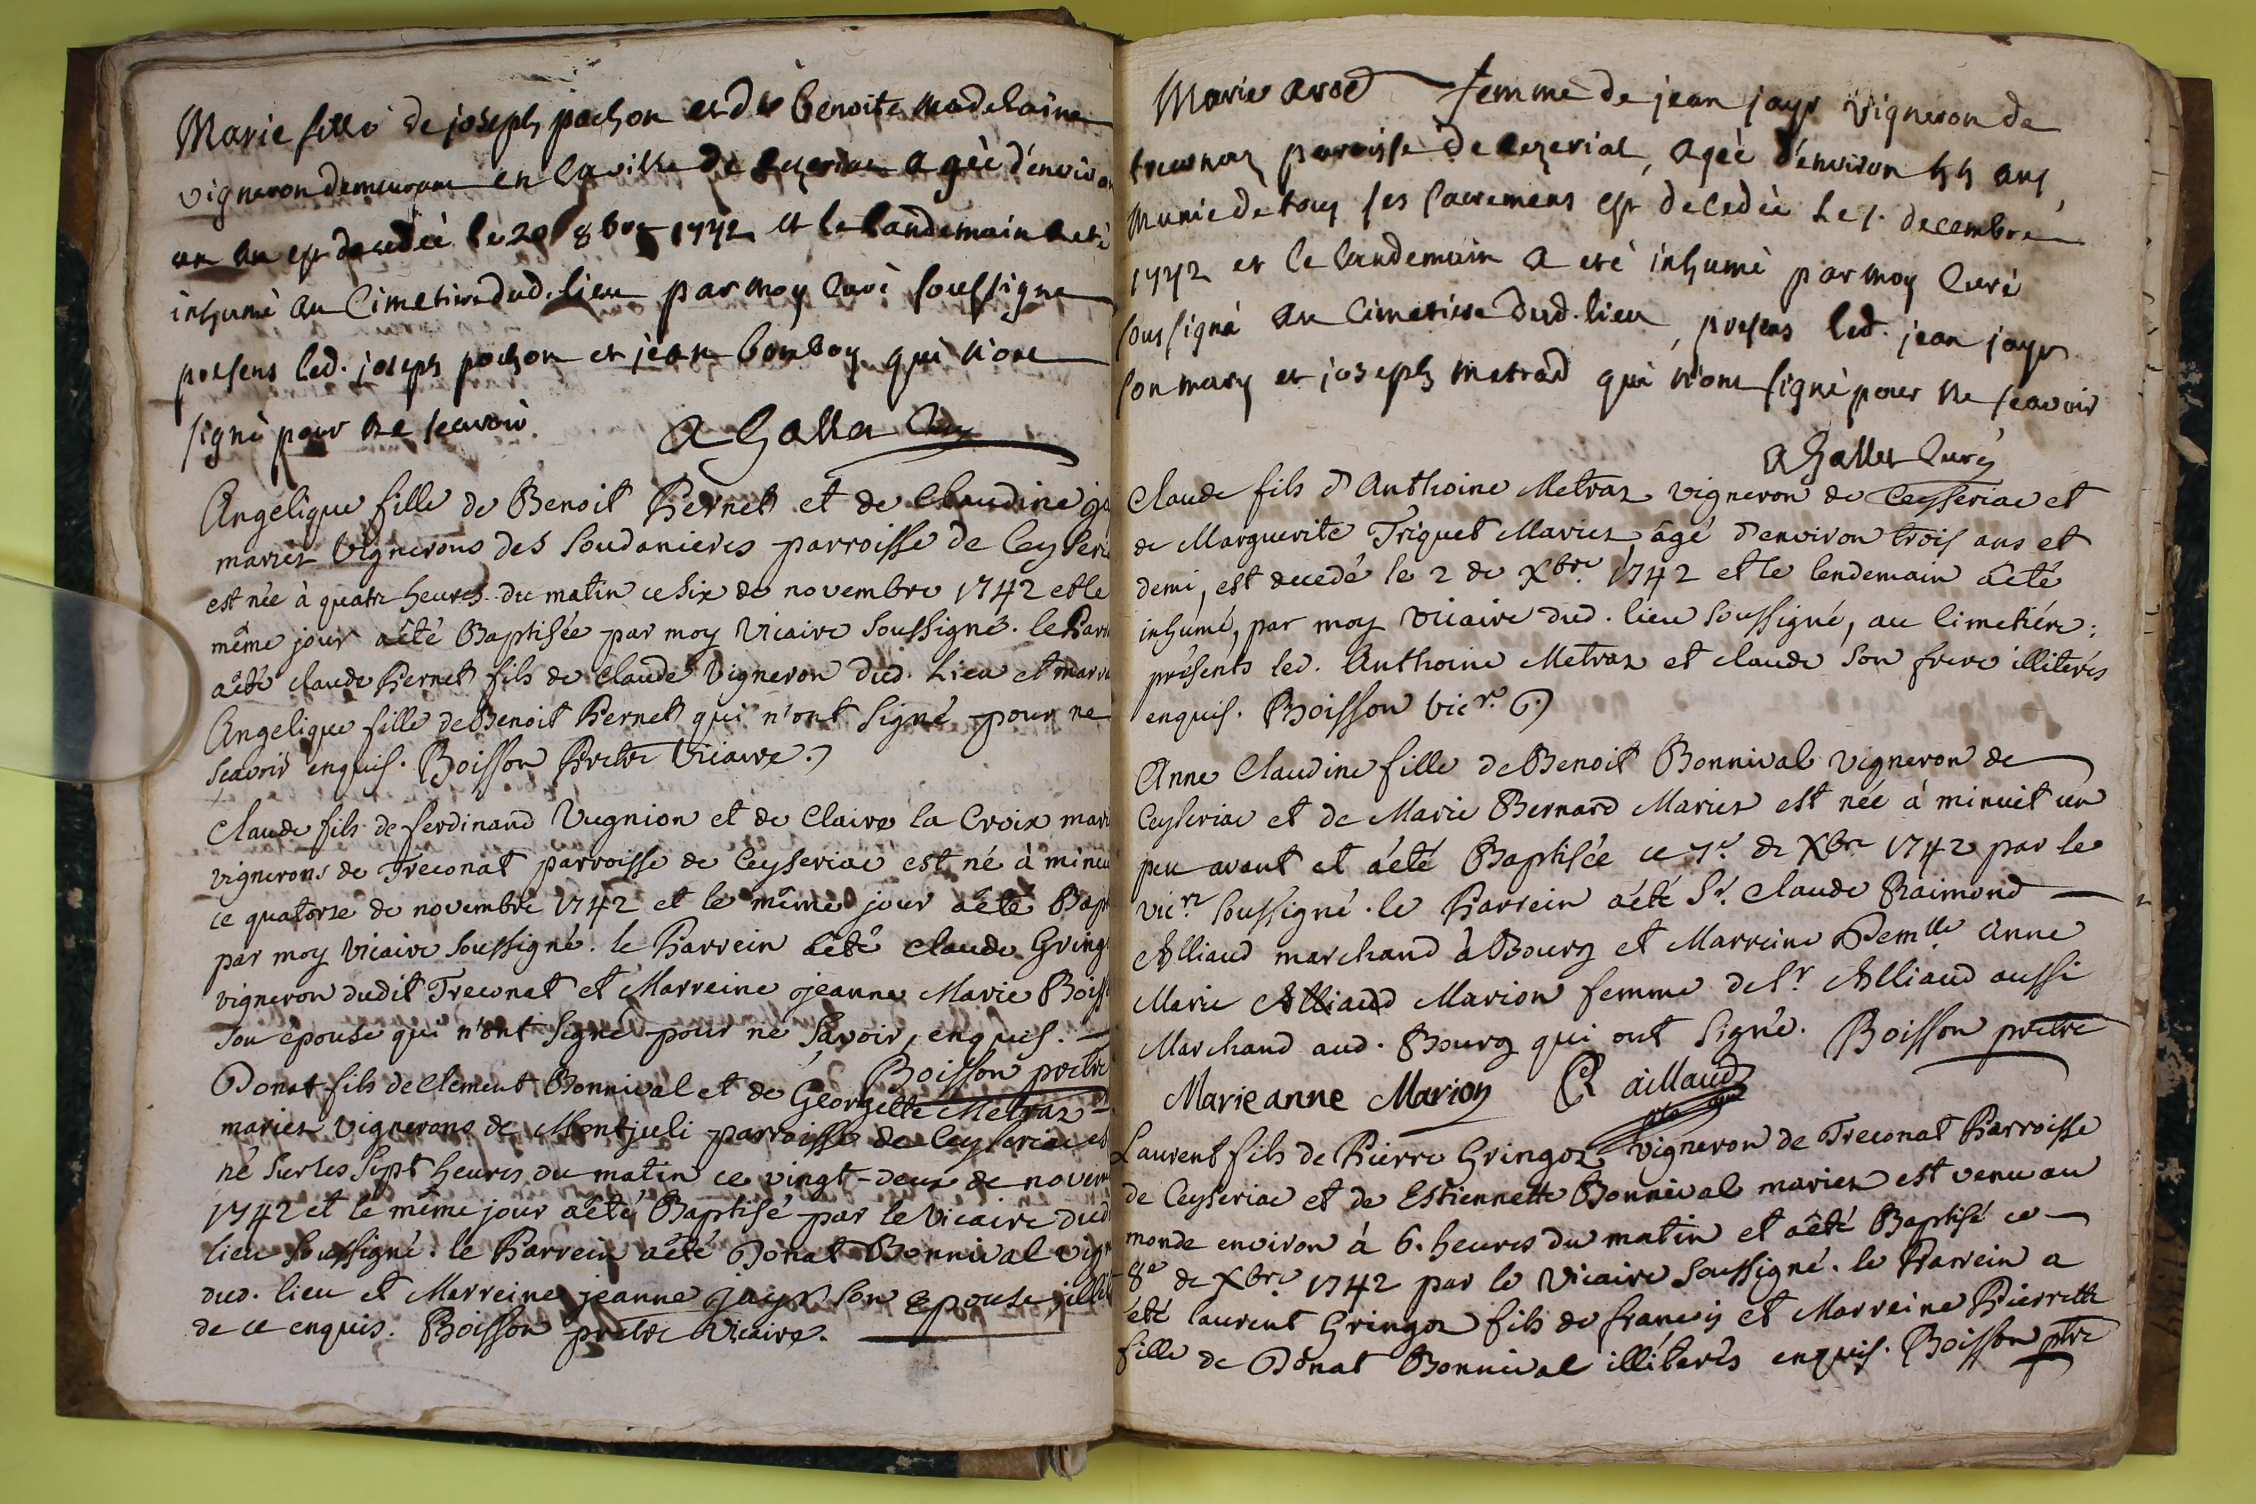 Marie fille de joseph pochon et de benoite madelaine
vigneron demeurant en la ville de agèe d'environ
un an est decedèe le 20 8bre 1742 et le landemain a etè
inhumè au Cimetiere dud. lieu par moy Curè soussigne
presens led. joseph pochon et jean qui n'ont
signè pour ne scavoir
Angelique fille de Benoit Pernet et de Claudine
mariez Vignerons des Soudanieres parroisse de
est née à quatre heures du matin ce six de novembre 1742 et le
même jour aêté Baptisée par moy Vicaire Soussigné. le
aêté Claude Pernet fils de Claude Vigneron dud. Lieu et
Angelique fille de Benoit Pernet qui n'ont Signé pour ne
Scavoir enquis. Boisson Pretre Vicaire.
Claude fils de ferdinand Vugnion et de Claire la Croix
vignerons de Treconat parroisse de Ceyseriac est né à
ce quatorze de novembre 1742 et le même jour aêté
par moy Vicaire soussigné. le Parrein aêté Claude
vigneron dudit Treconat et Marreine jeanne Marie
Son épouse qui n'ont Signé pour ne Savoir, enquis.
Boisson pretre
Donat fils de Clement Bonnival et de Georgette Metraz
mariez vignerons de Montjuli parroisse de Ceyseriac
né sur les Sept heures du matin ce vingt-deux de
1742 et le même jour aêté Baptisé par le Vicaire
lieu Soussigné. le Parrein aêté Donat Bonnival
dud. lieu et Marreine jeanne jayr son Epouse,
de ce enquis. Boisson pretre Vicaire.
Marie femme de jean jayr vigneron de
paroisse de , agèe d'environ 55 ans
Munie de tous ses Sacremens est decedèe Le 1. decembre
1742 et le landemain a etè inhumè par moy Curè
soussigné au Cimetiere dud. lieu, presens led. jean jayr
son mary et joseph metrad qui n'ont signè pour ne scavoir
Curé
Claude fils d'Anthoine Metraz vigneron de Ceyseriac et
de Marguerite Triquet Mariez âgé d'environ trois ans et
demi, est decedé le 2 de Xbre. 1742 et le lendemain aêté
inhumé, par moy Vicaire dud. lieu soussigné, au Cimetiére:
présents led. Anthoine Metraz et Claude Son frere illiterés
enquis. Boisson vicre.
Anne Claudine fille de Benoit Bonnival vigneron de
Ceyseriac et de Marie Bernard Mariez est née à minuit un
peu avant et aêté Baptisée ce 7e de Xbre 1742 par le
vicre. soussigné. le Parrein aêté Sr. Claude Raimond
Alliaud marchand à Bourg et Marreine Demlle Anne
Marie Alliaud Marion femme de Sr. Alliaud aussi
Marchand aud. Bourg qui ont signé. Boisson pretre
Marieanne Marion aillaud
Laurent fils de Pierre Gringoz vigneron de Treconat Parroisse
de Ceyseriac et de Estiennette Bonnival mariez est venu au
monde environ à 6. heures du matin et aêté Baptisé ce
8e de Xbre. 1742 par le Vicaire Soussigné. le Parrein a
été laurent Gringoz fils de francois et Marreine Pierrette
fille de Dônat Bonnival illitérés enquis. Boisson ptre